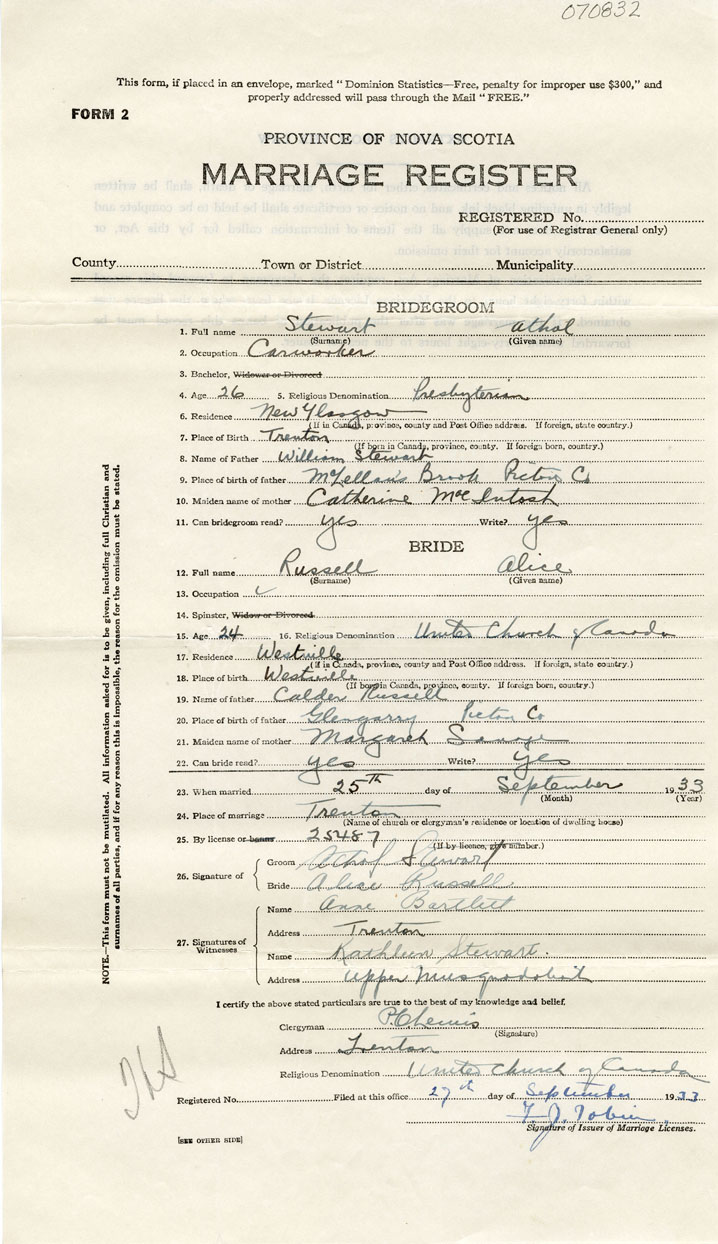 070832
This form, if placed in an envelope, marked "Dominion Statistics—Free, penalty for improper use $300," and
properly addressed will pass through the Mail "FREE."
FORM 2
PROVINCE OF NOVA SCOTIA
MARRIAGE REGISTER
REGISTERED No.
(For use of Registrar General only)
County Town or District Municipality
BRIDEGROOM
1. Full name Stewart Athol
(Surname) (Given name)
2. Occupation Carworker
3. Bachelor, Widower or Divorced
4. Age 26 5. Religious Denomination Presbyterian
6. Residence New Glasgow
(If in Canada, province, county and Post Office address. If foreign, state country.)
7. Place of Birth Trenton
(If born in Canada, province, county. If foreign born, country.)
8. Name of Father William Stewart
9. Place of birth of father McLellan's Brook Pictou Co
10. Maiden name of mother Catherine MacIntosh
11. Can bridegroom read? yes Write? yes
BRIDE
12. Full name Russell Alice
(Surname) (Given name)
13. Occupation
14. Spinster, Widow or Divorced
15. Age 24 16. Religious Denomination United Church of Canada
17. Residence Westville
(If in Canada, province, county and Post Office address. If foreign, state country.)
18. Place of birth Westville
(If born in Canada, province, county. If foreign born, country.)
19. Name of father Calder Russell
20. Place of birth of father Glengarry Pictou Co
21. Maiden name of mother Margaret Savage
22. Can bride read? yes Write? yes
23. When married 25th day of September 1933
(Month) (Year)
24. Place of marriage Trenton
(Name of church or clergyman's residence or location of dwelling house)
25. By license or banns 25487
(If by licence, give number.)
26. Signature of
Groom Athol Stewart
Bride Alice Russell
27. Signatures of Witnesses
Name Anne Bartlett
Address Trenton
Name Kathleen Stewart.
Address Upper Musquodoboit
I certify the above stated particulars are true to the best of my knowledge and belief.
Clergyman
(Signature)
Address Trenton
Religious Denomination United Church of Canada
Registered No. Filed at this office 27th day of September 1933
F. J. Tobin
Signature of Issuer of Marriage Licenses.
[SEE OTHER SIDE]
NOTE.—This form must not be mutilated. All information asked for is to be given, including full Christian and
surnames of all parties, and if for any reason this is impossible, the reason for the omission must be stated.